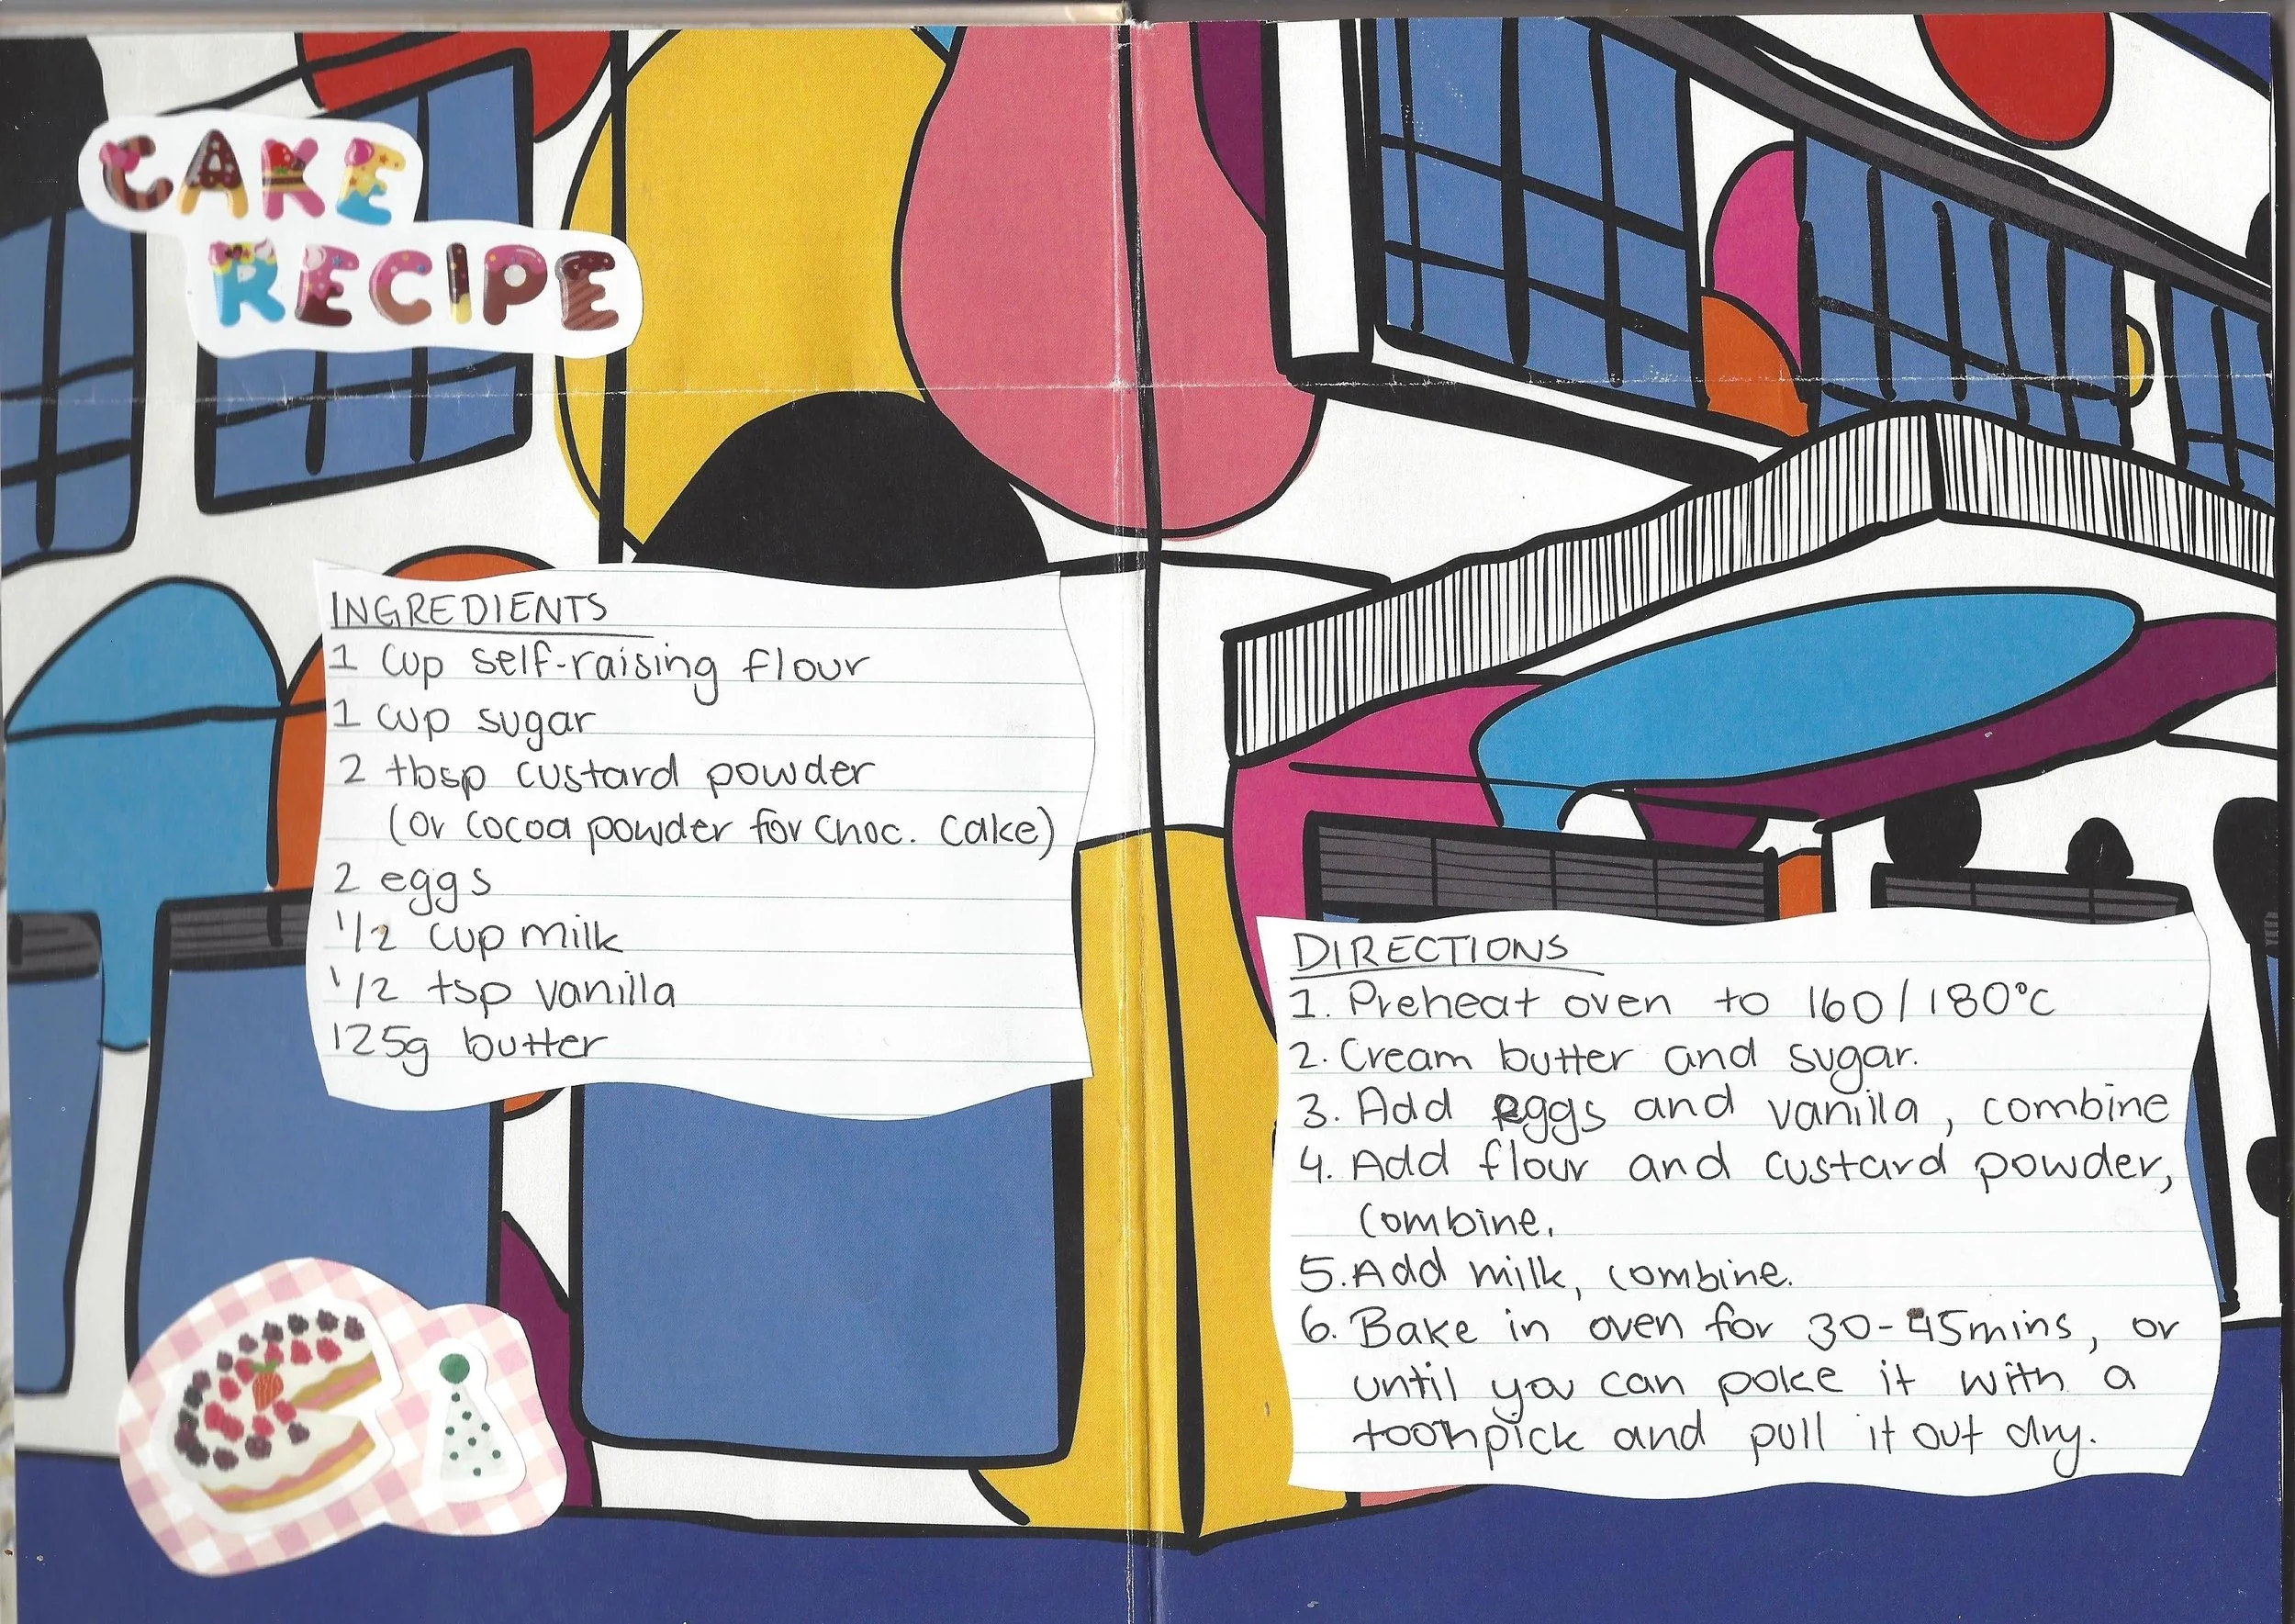 CAKE
RECIPE
INGREDIENTS
1 cup self-raising flour
1 cup sugar
2 tbsp custard powder
(or cocoa powder for choc. cake)
2 eggs
1/2 cup milk
1/2 tsp vanilla
125g butter
DIRECTIONS
1. Preheat oven to 160/180°C
2. Cream butter and sugar.
3. Add eggs and vanilla, combine
4. Add flour and custard powder,
combine.
5. Add milk, combine.
6. Bake in oven for 30-45mins, or
until you can poke it with a
toothpick and pull it out dry.